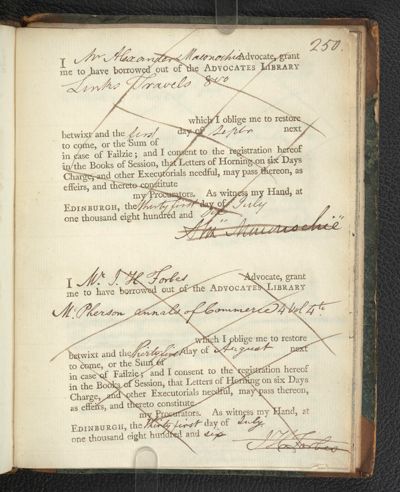 250.
I Mr Alexander Maconochie Advocate, grant
me to have borrowed out of the ADVOCATES LIBRARY
Links Travels 8vo
which I oblige me to restore
betwixt and the first day of Septr next
to come, or the Sum of
in case of Failzie; and I consent to the registration hereof
in the Books of Session, that Letters of Horning on six Days
Charge, and other Executorials needful, may pass thereon, as
effeirs, and thereto constitute
my Procurators. As witness my Hand, at
EDINBURGH, the Thirty first day of July
one thousand eight hundred and six
Alexr Maconochie
I Mr. J. H. Forbes Advocate, grant
me to have borrowed out of the ADVOCATES LIBRARY
McPherson annals of Commerce 4 Vol 4to
which I oblige me to restore
betwixt and the thirty first day of August next
to come, or the Sum of
in case of Failzie; and I consent to the registration hereof
in the Books of Session, that Letters of Horning on six Days
Charge, and other Executorials needful, may pass thereon,
as effeirs, and thereto constitute
my Procurators. As witness my Hand, at
EDINBURGH, the Thirty first day of July
one thousand eight hundred and six
J H Forbes